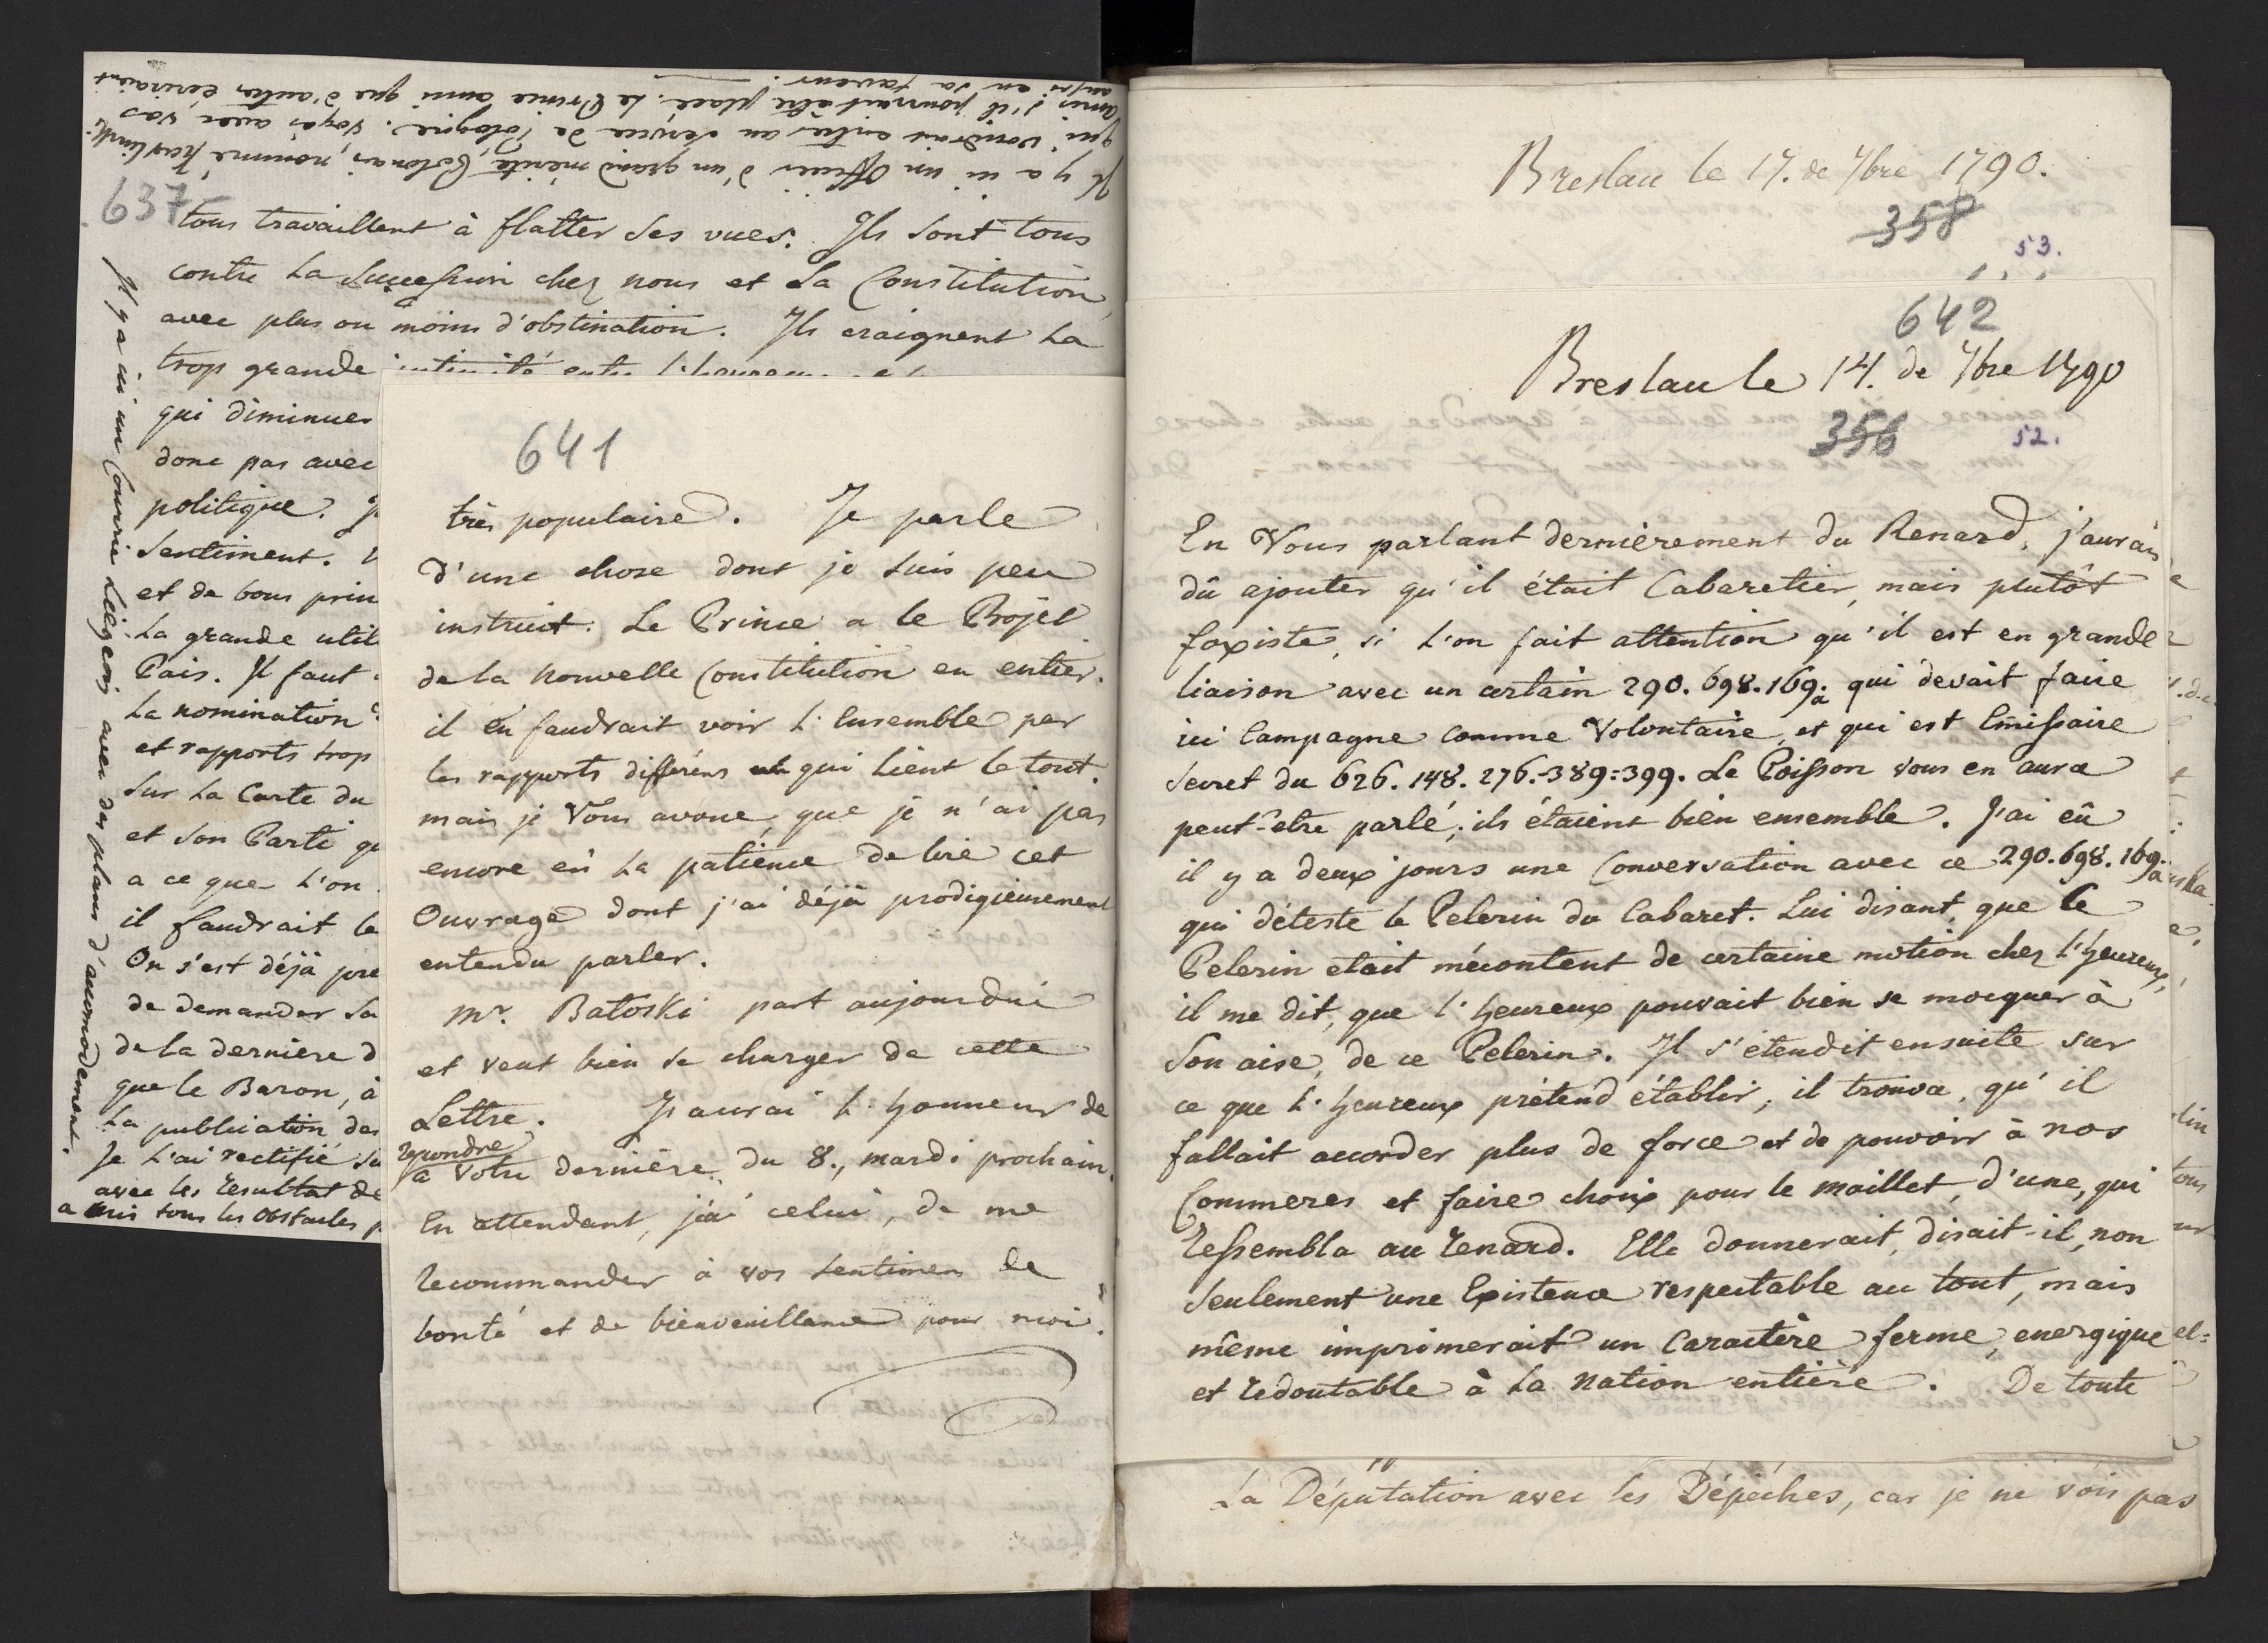 Il y a ici un Officier d'un grand mérite, Polonais, nommé
qui voudrait entrer au service de Pologne. Voyés avec vos
amis s'il pourrait être placé. Le Prince ainsi que d'autres écriraient
aussi en sa faveur.
637
tous travaillent à flatter ses vues. Ils sont tous
contre la Succession chez nous et la Constitution,
avec plus ou moins d'obstination. Ils craignent la
trop grande intimité entre l'heureux et
qui diminuer
donc pas avec
politique.
Sentiment.
et de bons prin
la grande util
Pais. Il faut
la nomination
et rapports trop
sur la Carte du
et son Parti qu
a ce que l'on
il faudrait le
On s'est déjà pre
de demander sa
de la dernière d
que le Baron, à
la publication des
Je l'ai rectifié su
avec les resultat de
a mis tous les obstacles p
Il y a ici un Courrier Liégeois avec des plans d'accomodement.
641
très populaire. Je parle
d'une chose dont je suis peu
instruit. Le Prince a le Projet
de la nouvelle Constitution en entier.
il en faudrait voir l'Ensemble par
les rapports différens qui lient le tout.
mais je Vous avoue, que je n'ai pas
encore eû la patience de lire cet
Ouvrage dont j'ai déjà prodigieusement
entendu parler.
Mr. Batoski part aujourdui
et veut bien se charger de cette
Lettre. J'aurai l'honneur de
repondre
à Votre dernière du 8., mardi prochain.
En attendant, j'ai celui, de me
recommander à vos sentimens de
bonté et de bienveuillance pour moi.
Breslau le 17. de 7bre 1790.
358
53.
642
Breslau le 14. de 7bre 1790
356
52.
En Vous parlant dernièrement du Renard, j'aurais
dû ajouter qu'il était Cabaretier, mais plutôt
foxiste, si l'on fait attention qu'il est en grande
liaison avec un certain 290. 698. 169.a qui devait faire
ici Campagne comme Volontaire, et qui est Emissaire
Secret du 626. 148. 276.=389=399. Le Poisson vous en aura
peut-être parlé; ils étaient bien ensemble. J'ai eû
il y a deux jours une Conversation avec ce 290. 698. 169.a
qui déteste le Pelerin du Cabaret. Lui disant, que le
Pelerin etait mécontent de certaine motion chez l'heureux,
il me dit, que l'heureux pouvait bien se mocquer à
Son aise, de ce Pelerin. Il s'étendit ensuite sur
ce que l'heureux prétend établir; il trouva, qu'il
fallait accorder plus de force et de pouvoir à nos
Commeres et faire choix pour le maillet, d'une, qui
ressembla au renard. Elle donnerait, disait-il, non
seulement une Existence respectable au tout, mais
même imprimerait un Caractère ferme, energique
et redoutable à la Nation entière. De toute
la Députation avec les Dépéches, car je ne vois pas